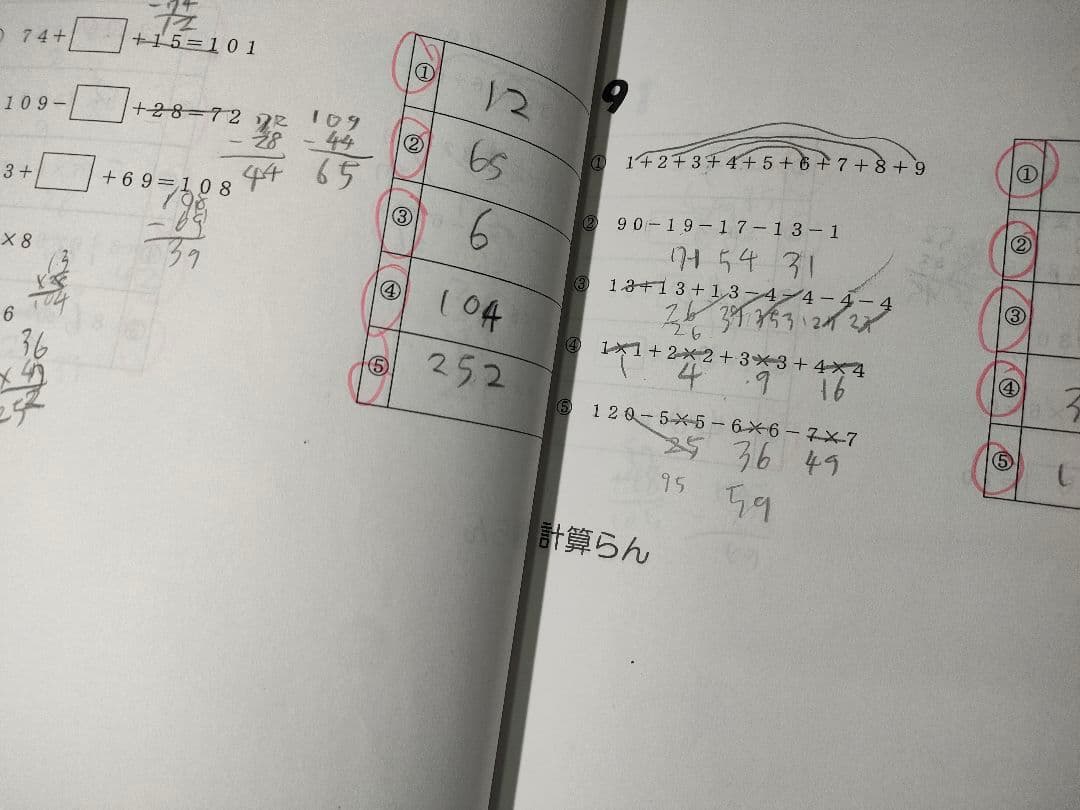 74+□+15=101
12
109-□+28=72
72
-28
44
109
-44
65
3+□+69=108
108
-69
39
×8
13
×8
104
6
36
252
① 12
② 65
③ 6
④ 104
⑤ 252
9
① 1+2+3+4+5+6+7+8+9
② 90-19-17-13-1
71 54 31
③ 13+13+13-4-4-4-4
26 39
26
④ 1×1+2×2+3×3+4×4
1 4 9 16
⑤ 120-5×5-6×6-7×7
25 36 49
95 59
計算らん
①
②
③
④
⑤